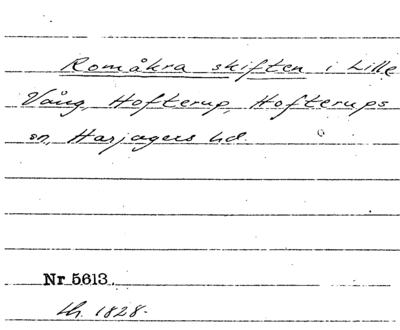 Romåkra skiften i Lille
Vång, Hofterup, Hofterups
sn, Harjagers hd.
Nr 5613.
th. 1828.